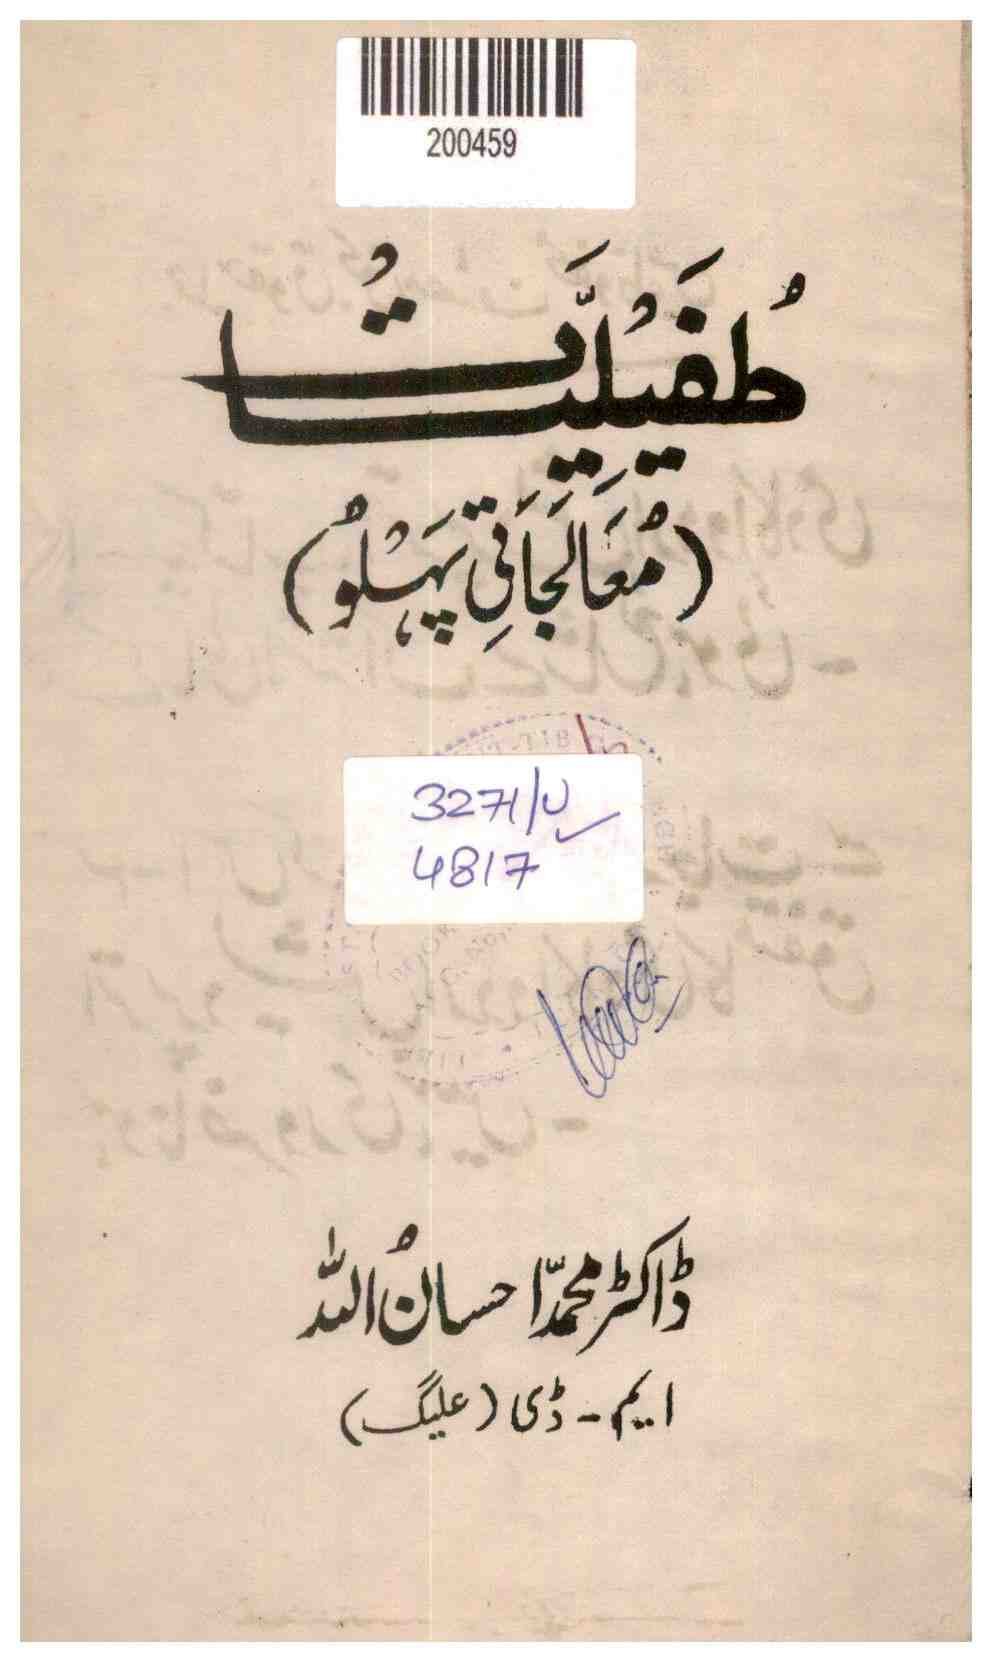 200459
طُفَیْلِیَّاتْ
(مُعَالَجَاتِی پَہْلُو)
3271/U
4817
ڈاکٹر محمدّ احسانُ اللہ
ایم - ڈی (علیگ)